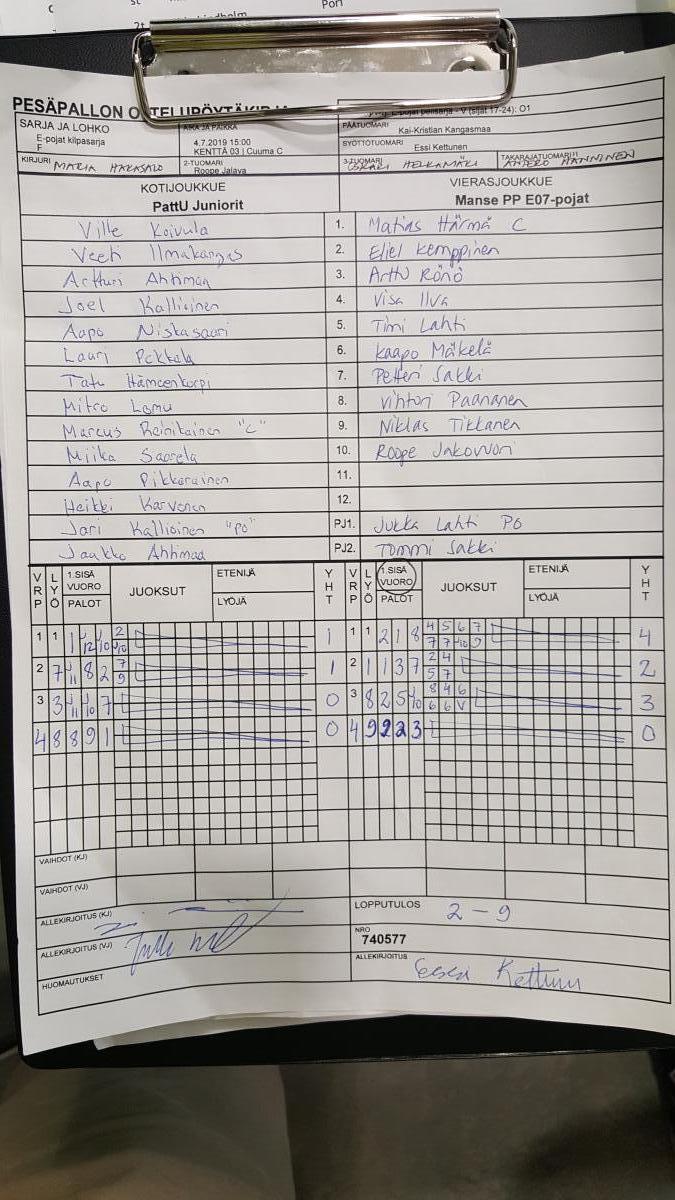 Pori
PESÄPALLON
SARJA JA LOHKO
E-pojat kilpasarja
F
AIKA JA PAIKKA
4.7.2019 15:00
KENTTÄ 03 | Cuuma C
E-pojat pelisarja - V (sijat 17-24): O1
PÄÄTUOMARI
Kai-Kristian Kangasmaa
SYÖTTÖTUOMARI
Essi Kettunen
KIRJURI MARIA HAKASALO
2-TUOMARI
Roope Jalava
3-TUOMARI
OSKARI HELKAMÄKI
TAKARAJATUOMARI
ANTERO MANNINEN
KOTIJOUKKUE
PattU Juniorit
VIERASJOUKKUE
Manse PP E07-pojat
Ville Koivula 1. Matias Härmä C
Veeti Ilmakangas 2. Eliel Kemppinen
Artturi Ahtimaa 3. Arttu Rönö
Joel Kallioinen 4. Visa Ilva
Aapo Niskasaari 5. Timi Lahti
Lauri Pekkala 6. Kaapo Mäkelä
Tatu Hämeenkorpi 7. Petteri Sakki
Mitro Lamu 8. Vihtori Paananen
Marcus Reinikainen "C" 9. Niklas Tikkanen
Miika Saarela 10. Roope Jakovuori
Aapo Pikkarainen 11.
Heikki Karvonen 12.
Jari Kallioinen "PO" PJ1. Jukka Lahti PO
Jaakko Ahtimaa PJ2. Tommi Sakki
VRP LYÖ 1.SISÄ VUORO PALOT JUOKSUT ETENIJÄ LYÖJÄ YHT VRP LYÖ 1.SISÄ VUORO PALOT JUOKSUT ETENIJÄ LYÖJÄ YHT
1 1 1 1 1 2 1 8 4 5 6 7 4
2 7 8 2 7 1 2 1 1 3 7 2 4 2
9 5 7
3 3 7 0 3 8 2 5 8 4 6 3
4 8 8 9 1 0 4 9 2 2 3 0
VAIHDOT (KJ)
VAIHDOT (VJ)
ALLEKIRJOITUS (KJ)
LOPPUTULOS 2 - 9
ALLEKIRJOITUS (VJ)
NRO
740577
HUOMAUTUKSET
ALLEKIRJOITUS Essi Kettunen